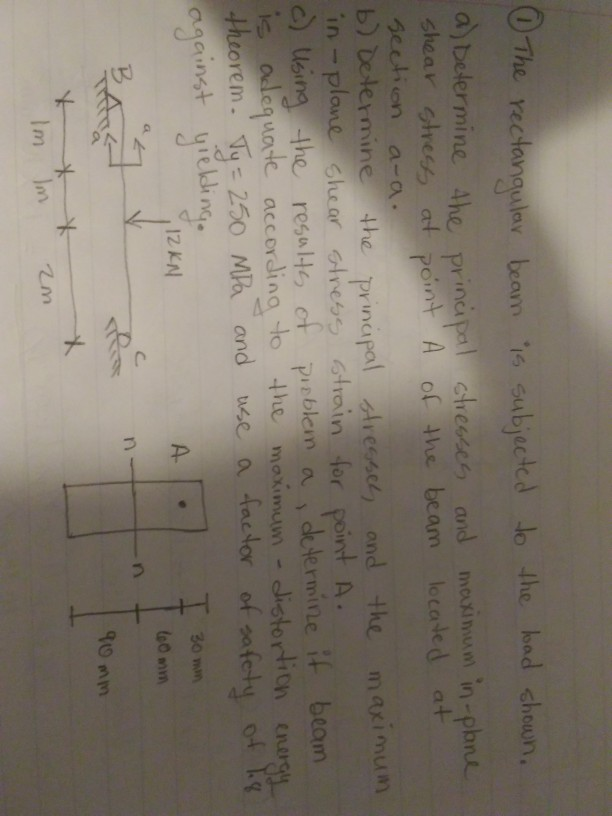 ① The rectangular beam is subjected to the load shown.
a) Determine the principal stresses, and maximum in-plane
shear stress, at point A of the beam located at
section a-a.
b) Determine the principal stresses, and the maximum
in-plane shear stress, strain for point A.
c) Using the results of problem a, determine if beam
is adequate according to the maximum-distortion energy
theorem. σy = 250 MPa and use a factor of safety of 1.8
against yielding.
12KN
a
a
B
C
1m 1m 2m
A
n n
30 mm
60 mm
90 mm